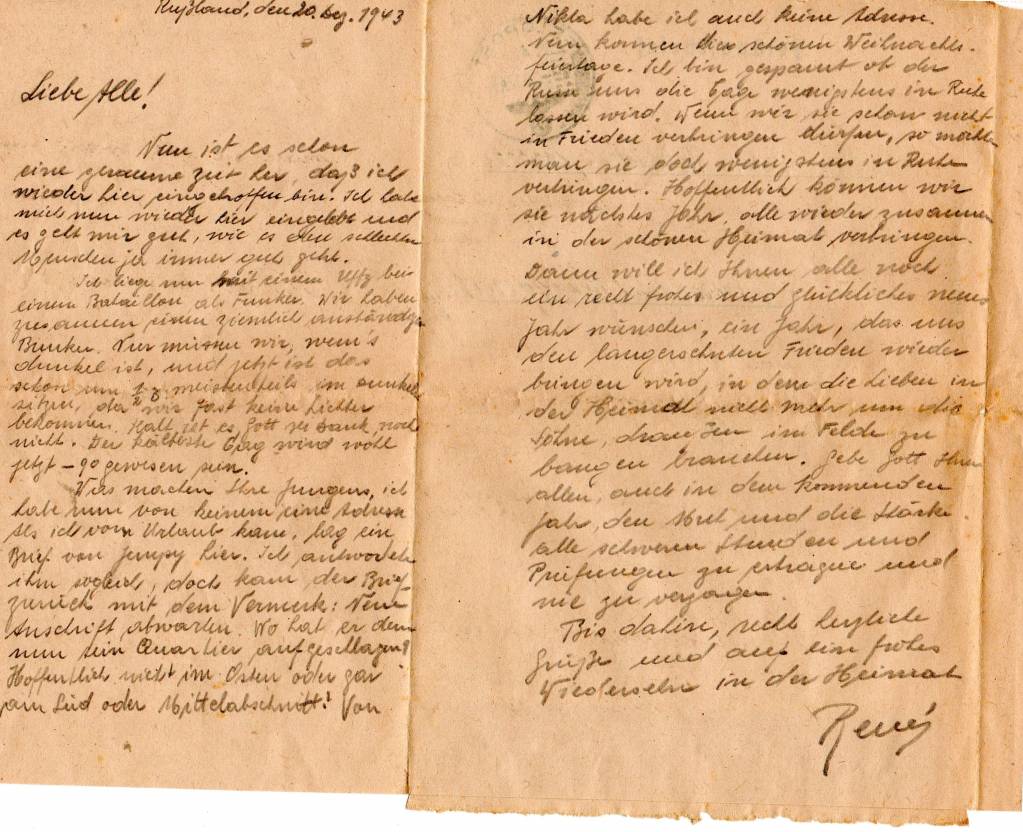 Rußland, den 20. Dez. 1943
Liebe Alle!
Nun ist es schon
eine geraume Zeit her, daß ich
wieder hier eingetroffen bin. Ich habe
mich nun wieder hier eingelebt und
es geht mir gut, wie es den schlechten
Menschen ja immer gut geht.
Ich liege nun mit einem Uffz bei
einem Bataillon als Funker. Wir haben
zusammen einen ziemlich anständigen
Bunker. Nur müssen wir, wenn's
dunkel ist, und jetzt ist das
schon um meistenteils im dunkel
sitzen, da wir fast keine Lichter
bekommen. Kalt ist es Gott sei Dank, noch
nicht. Der kälteste Tag wird wohl
jetzt – 9° gewesen sein.
Was machen Ihre Jungens, ich
habe nun von keinem eine Adresse
Als ich vom Urlaub kam, lag ein
Brief von Jempy hier. Ich antwortete
ihm sogleich, doch kam der Brief
zurück mit dem Vermerk: Neue
Anschrift abwarten. Wo hat er denn
nun sein Quartier aufgeschlagen?
Hoffentlich nicht im Osten oder gar
am Süd oder Mittelabschnitt? Von
Nikla habe ich auch keine Adresse.
Nun kommen die schönen Weihnachts-
feiertage. Ich bin gespannt ob der
Russe uns die Tage wenigstens in Ruhe
lassen wird. Wenn wir sie schon nicht
in Frieden verbringen dürfen, so möchte
man sie doch wenigstens in Ruhe
verbringen. Hoffentlich können wir
sie nächstes Jahr, alle wieder zusammen
in der schönen Heimat verbringen.
Dann will ich Ihnen alle noch
ein recht frohes und glückliches neues
Jahr wünschen, ein Jahr, das uns
den langersehnten Frieden wieder
bringen wird, in dem die Lieben in
der Heimat nicht mehr um die
Söhne, draußen im Felde zu
bangen brauchen. Gebe Gott Ihnen
allen, auch in dem kommenden
Jahr, den Mut und die Stärke
alle schweren Stunden und
Prüfungen zu ertragen und
nie zu verzagen.
Bis dahin, recht herzliche
Grüße und auf ein frohes
Wiedersehn in der Heimat
René